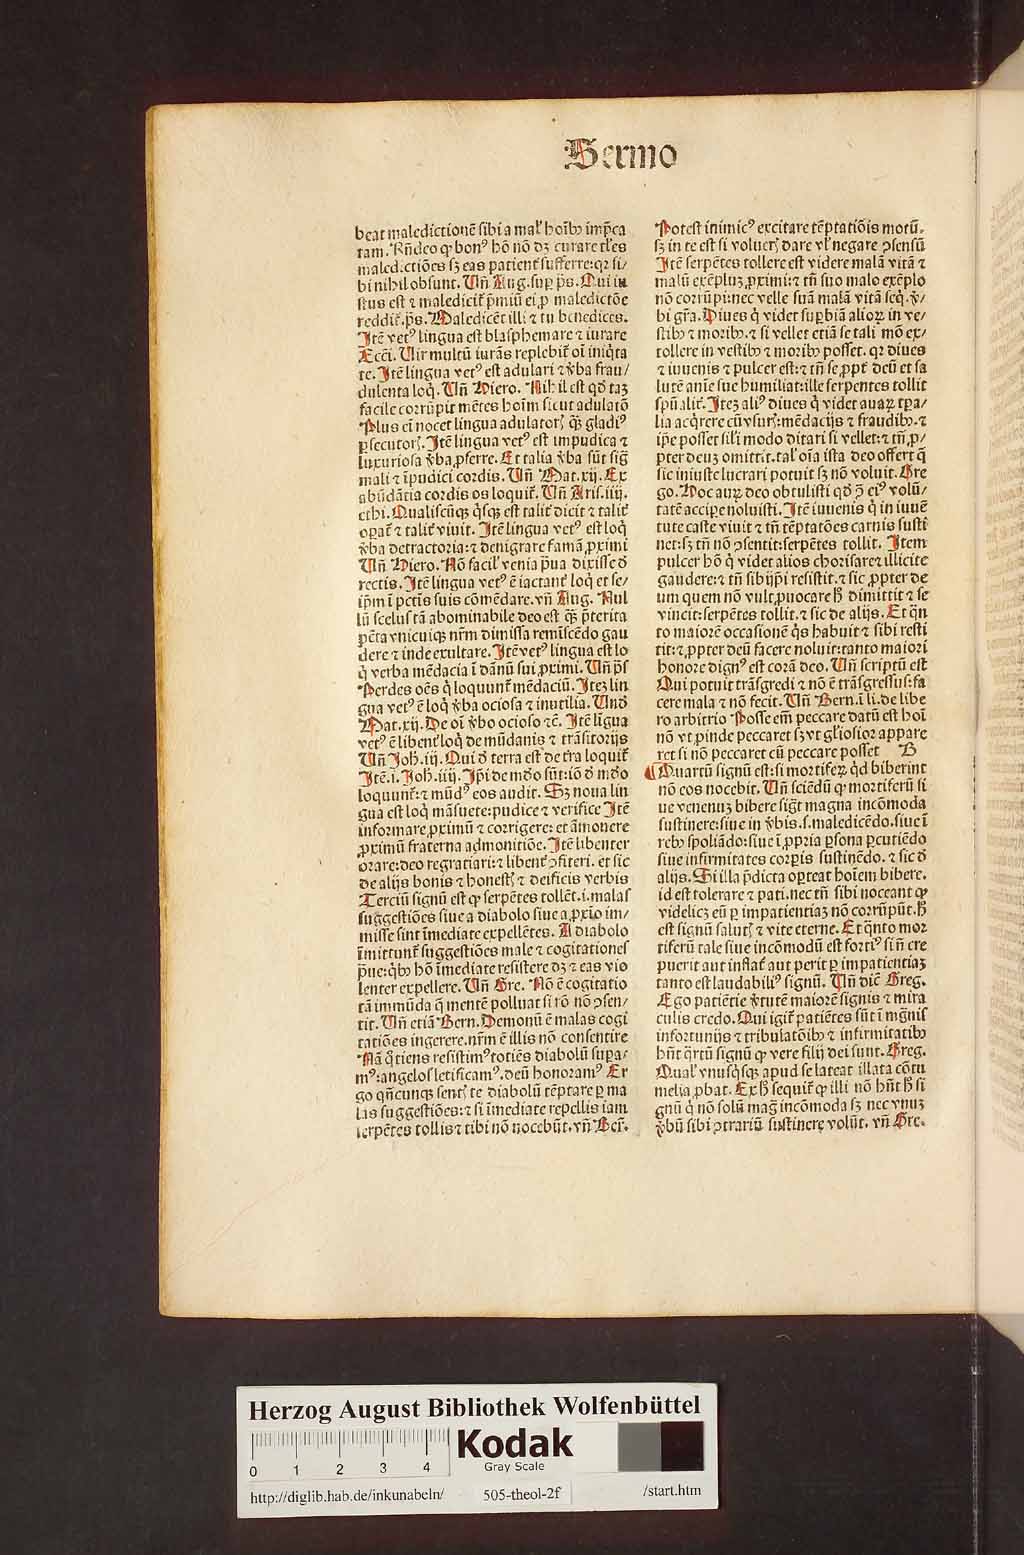 Sermo
beat maledictionē sibi a mal' hoīb imp̄ca
tam. Rn̄deo ꝙ bonꝰ hō nō dꝫ curare tl'es
maledictiōes sꝫ eas patient̄ sufferre: qꝛ si/
bi nihil obsunt. Vn̄ Aug. suꝑ ps̄. Qui in
stus est ⁊ maledicit̄ p̄miū ei ꝓ maledictōe
reddit̄. ps̄. Maledicēt illi ⁊ tu benedices.
Itē vetꝰ lingua est blasphemare ⁊ iurare
Ecci. Vir multū iurās replebit̄ oī iniq̄ta
te. Itē lingua vetꝰ est adulari ⁊ v̄ba frau/
dulenta loq̄. Vn̄ Hiero. Nihil est qd̄ taꝫ
facile corrūpit mētes hoīm sicut adulatō
Plus eī nocet lingua adulatorꝭ qꝫ̄ gladiꝰ
ꝑsecutorꝭ. Itē lingua vetꝰ est impudica ⁊
luxuriosa v̄ba ꝓferre. Et talia v̄ba sūt siḡ
mali ⁊ īpudici cordis. Vn̄ Mat. xij. Ex
abūdātia cordis os loquit̄. Vn̄ Aris. iiij.
ethi. Qualiscūqꝫ q̄sqꝫ est talit̄ dicit ⁊ talit̄
oꝑat̄ ⁊ talit̄ viuit. Itē lingua vetꝰ est loq̄
v̄ba detractoria: ⁊ denigrare famā ꝓximi
Vn̄ Hiero. Nō facil' venia p̄ua dixisse d̄
rectis. Itē lingua vetꝰ ē iactant̄ loq̄ et se/
ip̄m ī pctīs suis cōmēdare. vn̄ Aug. Nul
lū scelus tā abominabile deo est qꝫ̄ p̄terita
pctā vnicuiqꝫ nr̄m dimissa remīscēdo gau
dere ⁊ inde exultare. Itē vetꝰ lingua est lo
q̄ verba mēdacia ī dānū sui ꝓximi. Vn̄ ps̄
Perdes oēs q̄ loquunt̄ mēdaciū. Iteꝫ lin
gua vetꝰ ē loq̄ v̄ba ociosa ⁊ inutilia. Vnd̄
Mat. xij. De oī v̄bo ocioso ⁊c̄. Itē līgua
vetꝰ ē libent̄ loq̄ de mūdanis ⁊ trāsitorijs
Vn̄ Joh. iij. Qui d̄ terra est de tr̄a loquit̄
Itē. i. Joh. iiij. Ip̄i de mūdo sūt: iō d̄ mūdo
loquunt̄: ⁊ mūdꝰ eos audit. Sꝫ noua lin
gua est loq̄ māsuete: pudice ⁊ verifice Itē
informare ꝓximū ⁊ corrigere: et āmonere
ꝓximū fraterna admonitiōe. Itē libenter
orare: deo regratiari: ⁊ libent̄ ꝯfiteri. et sic
de alijs bonis ⁊ honestꝭ ⁊ deificis verbis
Terciū signū est ꝙ serpētes tollēt. i. malas
suggestiōes siue a diabolo siue a ꝓxīo im/
misse sint īmediate expellētes. A diabolo
īmittunt̄ suggestiōes male ⁊ cogitationes
p̄ue: qb̄ hō īmediate resistere dꝫ ⁊ eas vio
lenter expellere. Vn̄ Gre. Nō ē cogitatio
tā immūda q̄ mentē polluat si rō nō ꝯsen/
tit. Vn̄ etiā Bern. Demonū ē malas cogi
tatiōes ingerere. nr̄m ē illis nō consentire
Nā q̄tiens resistimꝰ totiēs diabolū suꝑa/
mꝰ: angelos letificamꝰ. deū honoramꝰ Er
go qn̄cunqꝫ sentꝭ te diabolū tēptare ꝑ ma
las suggestiōes: ⁊ si īmediate repellis iam
serpētes tollis ⁊ tibi nō nocebūt. vn̄ Ber̄.
Potest inimicꝰ excitare tēptatiōis motū.
sꝫ in te est si voluerꝭ dare vl' negare ꝯsensū
Itē serpētes tollere est videre malā vitā ⁊
malū exēpluꝫ ꝓximi: ⁊ tn̄ suo malo exēplo
nō corrūpi: nec velle suā malā vitā seq̄. v̄/
bi gr̄a. Diues q̄ videt suꝑbiā alioꝝ in ve/
stib ⁊ morib. ⁊ si vellet etiā se tali mō ex/
tollere in vestib ⁊ morib posset. qꝛ diues
⁊ iuuenis ⁊ pulcer est: ⁊ tn̄ se ꝓpt̄ deū et sa
lutē anīe sue humiliat: ille serpentes tollit
spūalit̄. Iteꝫ aliꝰ diues q̄ videt auaꝝ tꝑa/
lia acq̄rere cū vsurꝭ: mēdacijs ⁊ fraudib. ⁊
ip̄e posset sil'i modo ditari si vellet: ⁊ tn̄ ꝓ/
pter deuꝫ omittit. tal' oīa ista deo offert q̄
sic iniuste lucrari potuit sꝫ nō voluit. Gre
go. Hoc auꝝ deo obtulisti qd̄ p̄ eiꝰ volū/
tatē accipe noluisti. Itē iuuenis q̄ in iuuē
tute caste viuit ⁊ tn̄ tēptatōes carnis susti
net: sꝫ tn̄ nō ꝯsentit: serpētes tollit. Item
pulcer hō q̄ videt alios chorisare ⁊ illicite
gaudere: ⁊ tn̄ sibijp̄i resistit. ⁊ sic ꝓpter de
um quem nō vult ꝓuocare hꝭ dimittit ⁊ se
vincit: serpētes tollit. ⁊ sic de alijs. Et q̄n
to maiorē occasionē q̄s habuit ⁊ sibi resti
tit: ⁊ ꝓpter deū facere noluit: tanto maiori
honore dignꝰ est corā deo. Vn̄ scriptū est
Qui potuit trāsgredi ⁊ nō ē trāsgressus: fa
cere mala ⁊ nō fecit. Vn̄ Bern. ī li. de libe
ro arbitrio Posse em̄ peccare datū est hoī
nō vt ꝓinde peccaret sꝫ vt gl'iosior appare
ret si nō peccaret cū peccare posset B
¶ Quartū signū est: si mortifeꝝ qd̄ biberint
nō eos nocebit. Vn̄ sciēdū ꝙ mortiferū si
ue venenuꝫ bibere siḡt magna incōmoda
sustinere: siue in v̄bis. s. maledicēdo. siue ī
reb spoliādo: siue ī ꝓpria ꝑsona ꝑcutiēdo
siue infirmitates corꝑis sustinēdo. ⁊ sic d̄
alijs. Si illa p̄dicta oꝑteat hoīem bibere.
id est tolerare ⁊ pati. nec tn̄ sibi noceant ꝙ
videlicꝫ eū ꝑ impatientiaꝫ nō corrūpūt. hꝭ
est signū salutꝭ ⁊ vite eterne. Et q̄nto mor
tiferū tale siue incōmodū est fortiꝰ si n̄ cre
puerit aut inflat̄ aut perit ꝑ impatientiaꝫ
tanto est laudabiliꝰ signū. Vn̄ dic̄ Greg.
Ego patiētie v̄tutē maiorē signis ⁊ mira
culis credo. Qui igit̄ patiētes sūt ī mḡnis
infortunijs ⁊ tribulatōib ⁊ infirmitatib
hn̄t q̄rtū signū ꝙ vere filij dei sunt. Greg.
Qual' vnusq̄sqꝫ apud se lateat illata cōtu
melia ꝓbat. Ex hꝭ sequit̄ ꝙ illi nō hn̄t hꝭ si
gnū q̄ nō solū maḡ incōmoda sꝫ nec vnuꝫ
v̄bū sibi ꝯtrariū sustinere volūt. vn̄ Gre.
Herzog August Bibliothek Wolfenbüttel
0 1 2 3 4
Kodak
Gray Scale
http://diglib.hab.de/inkunabeln/ 505-theol-2f /start.htm